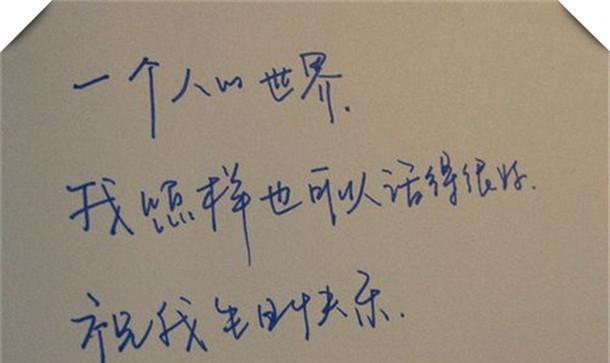 一个人的世界.
我照样也可以话得很好.
祝我生日快乐.